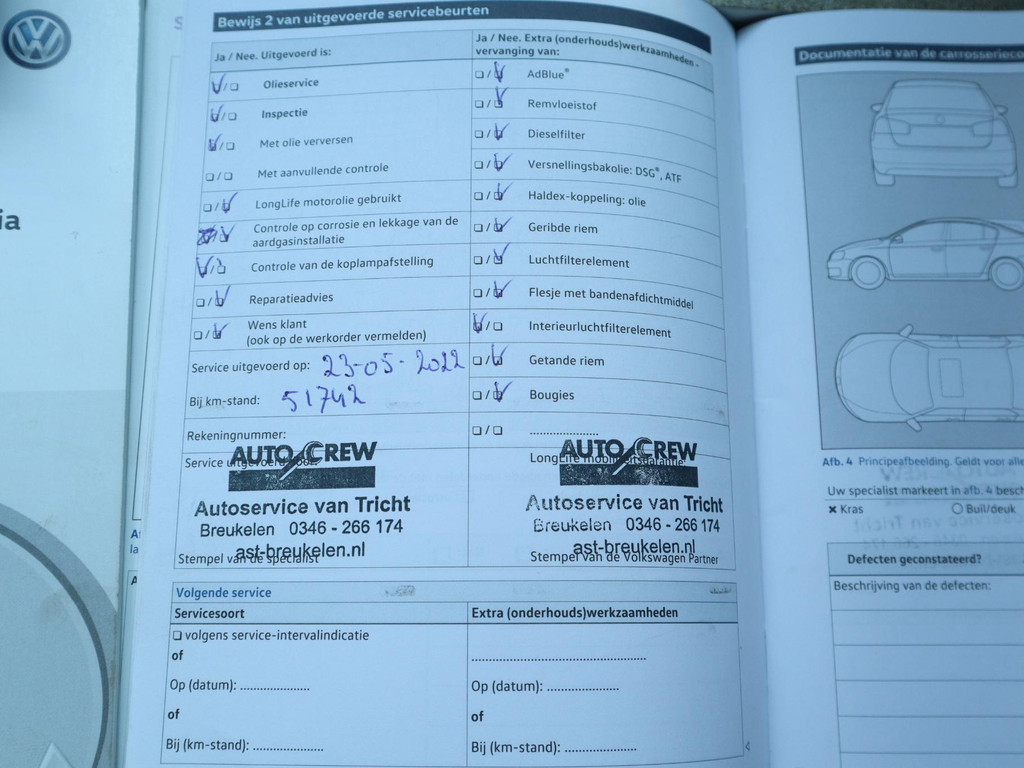 Bewijs 2 van uitgevoerde servicebeurten
Ja / Nee. Uitgevoerd is:
Olieservice
Inspectie
Met olie verversen
Met aanvullende controle
LongLife motorolie gebruikt
Controle op corrosie en lekkage van de
aardgasinstallatie
Controle van de koplampafstelling
Reparatieadvies
Wens klant
(ook op de werkorder vermelden)
Service uitgevoerd op: 23-05-2022
Bij km-stand: 51742
Rekeningnummer:
Service uitgevoerd door:
AUTO CREW
Autoservice van Tricht
Breukelen 0346 - 266 174
ast-breukelen.nl
Stempel van de specialist
Ja / Nee. Extra (onderhouds)werkzaamheden -
vervanging van:
AdBlue®
Remvloeistof
Dieselfilter
Versnellingsbakolie: DSG®, ATF
Haldex-koppeling: olie
Geribde riem
Luchtfilterelement
Flesje met bandenafdichtmiddel
Interieurluchtfilterelement
Getande riem
Bougies
....................
LongLife mobiliteitsgarantie
AUTO CREW
Autoservice van Tricht
Breukelen 0346 - 266 174
ast-breukelen.nl
Stempel van de Volkswagen Partner
Volgende service
Servicesoort
volgens service-intervalindicatie
of
Op (datum): ....................
of
Bij (km-stand): ....................
Extra (onderhouds)werkzaamheden
..................................................
Op (datum): ....................
of
Bij (km-stand): ....................
Documentatie van de carrosserieco
Afb. 4 Principeafbeelding. Geldt voor alle
Uw specialist markeert in afb. 4 besch
× Kras
Buil/deuk
Defecten geconstateerd?
Beschrijving van de defecten:
VW
ia